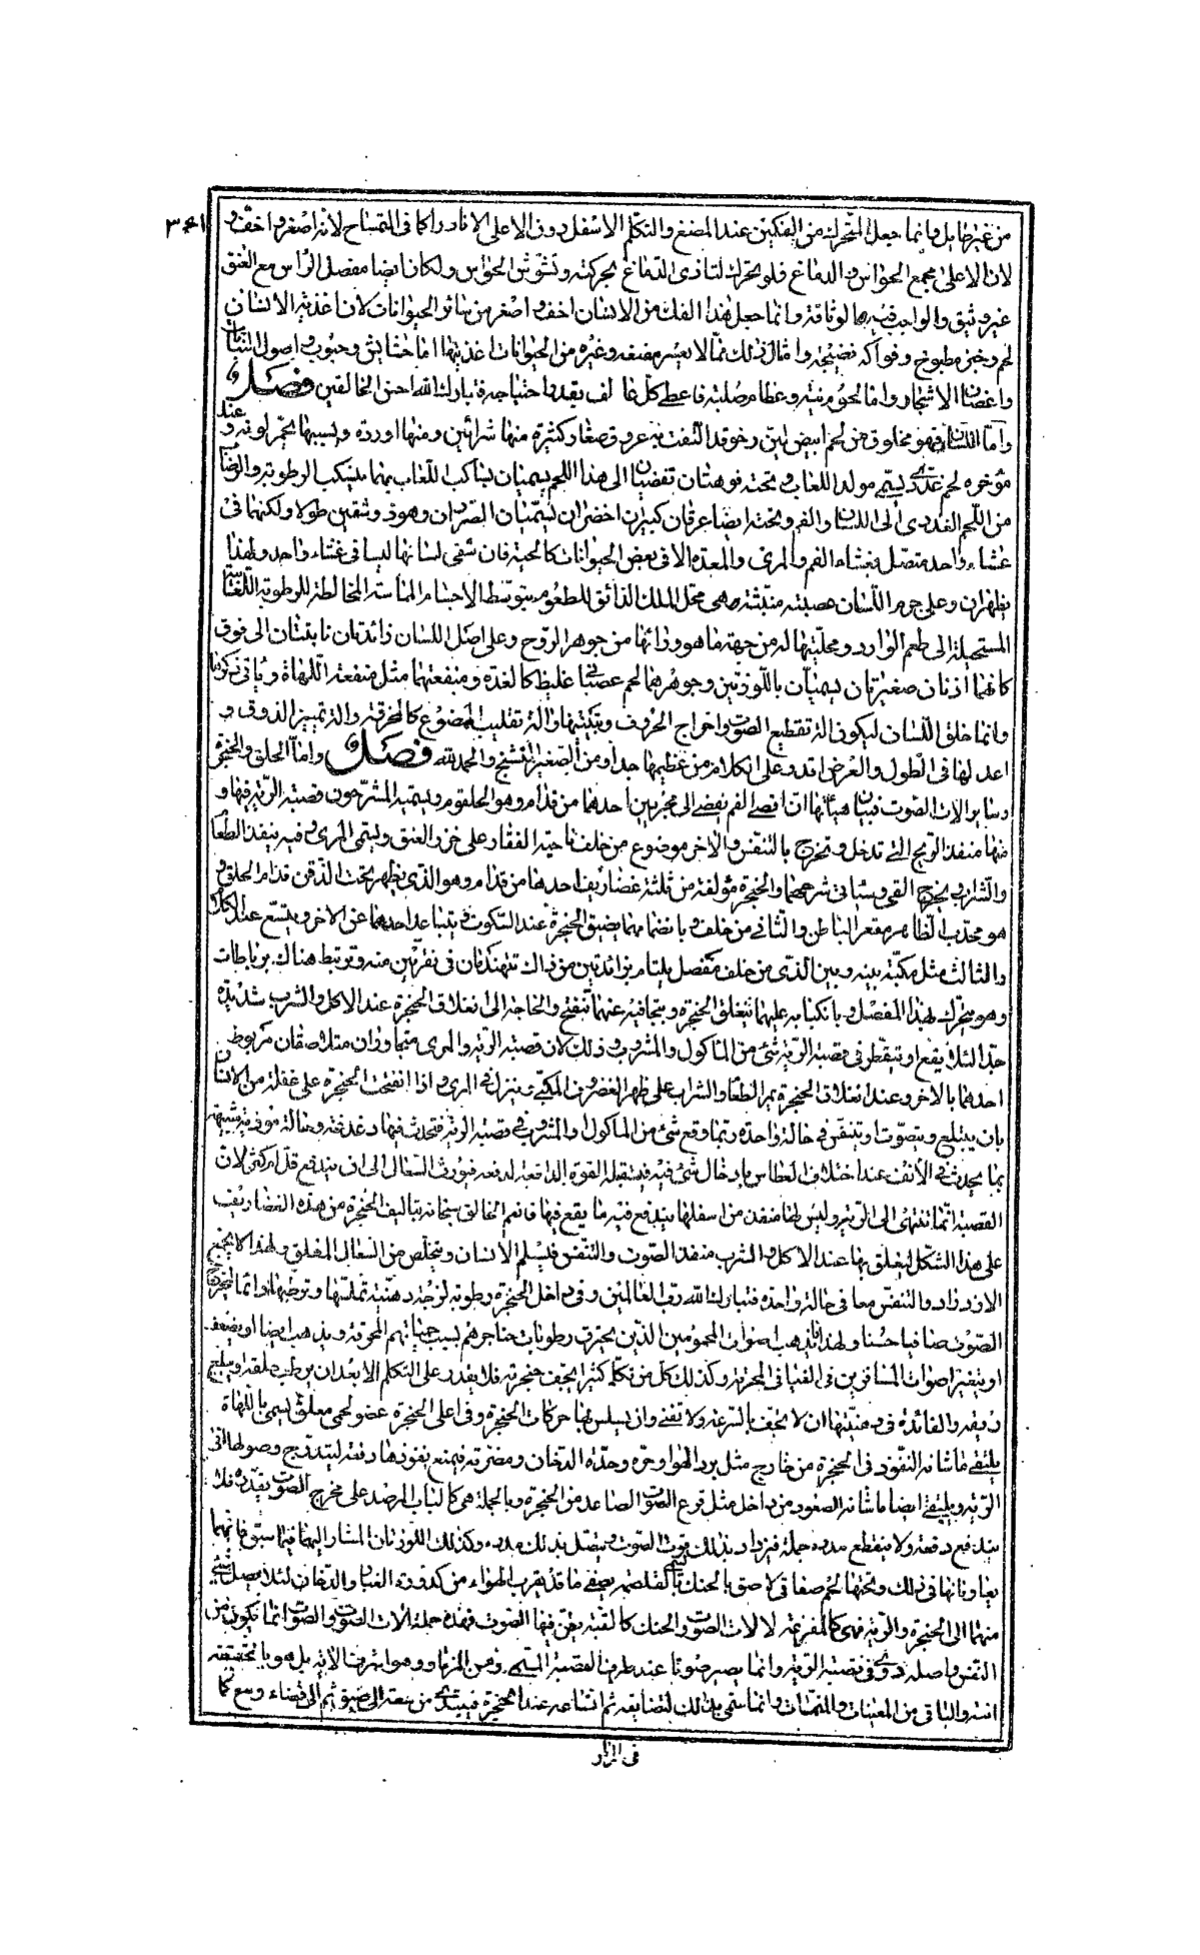 من غير طايل وانما جعل المتحرك من الفكين عند المضغ والتكلم الاسفل دون الاعلى الا نادرا كما فى التمساح لانه اصغر واخف و
لان الاعلى مجمع الحواس والدماغ فلو تحرك لتاذى الدماغ بحركته وتشوش الحواس ولكان ايضا مفصل الراس مع العنق
غير وثيق والواجب فيهما الوثاقة وانما جعل هذا الفك من الانسان اخف واصغر من سائر الحيوانات لان اغذية الانسان
لحم وخبز مطبوخ وفواكه نضيجة وامثال ذلك مما لا يعسر مضغه وغيره من الحيوانات اغذيتها اما حشايش وحبوب واصول النبات
واغصان الاشجار واما لحوم نيته وعظام صلبة فاعطى كل علف بقدر احتياجه فتبارك الله احسن الخالقين فصل
واما اللسان فهو مخلوق من لحم ابيض لين رخو قد التفت به عروق صغار كثيرة منها شرائين ومنها اوردة وبسببها يحمر لونه وعند
مؤخره لحم غددى يسمى مولد اللعاب وتحته فوهتان تفضيان الى هذا اللحم يسميان بساكب اللعاب بهما ينسكب الرطوبة والرضاب
من اللحم الغددى الى اللسان والفم وتحته ايضا عرقان كبيران اخضران يسميان الصردان وهو ذو شقين طولا ولكنهما فى
غشاء واحد متصل بغشاء الفم والمرى والمعدة الا فى بعض الحيوانات كالحية فان شقى لسانها ليسا فى غشاء واحد ولهذا
يظهران وعلى جرم اللسان عصبة منبثة هى محل الملك الذائق للطعوم بتوسط الاجسام المماسة المخالطة للرطوبة اللعابية
المستحيلة الى طعم الوارد ومحليتها له من جهة ما هو وذاتها من جوهر الروح وعلى اصل اللسان زائدتان نابتتان الى فوق
كانهما اذنان صغيرتان يسميان باللوزتين وجوهرهما لحم عصبانى غليظ كالغدة ومنفعتهما مثل منفعة اللهاة وياتى ذكرها
وانما خلق اللسان ليكون الة تقطيع الصوت واخراج الحروف وتبيينها والة تقليب الممضوغ كالمجرفة والة تمييز الذوق و
اعدلها فى الطول والعرض اقدر على الكلام من عظيمها جدا ومن الصغير المتشنج والحمد لله فصل واما الحلق والحنجرة
وسائر الات الصوت فبيان هيئاتها ان اقصى الفم يفضى الى مجريين احدهما من قدام وهو الحلقوم ويسميه المشرحون قصبة الرية فيها و
منها منفذ الريح التى تدخل وتخرج بالتنفس والاخر موضوع من خلف ناحية الفقار على خرز العنق ويسمى المرى وفيه ينفذ الطعام
والشراب ويخرج القى وسياتى شرحهما والحنجرة مؤلفة من ثلثة غضاريف احدها من قدام وهو الذى يظهر تحت الذقن قدام الحلق و
هو محدب الظاهر مقعر الباطن والثانى من خلف وبانضمامهما يضيق الحنجرة عند السكوت وبتباعد احدهما عن الاخر ويتسع عند الكلام
والثالث مثل مكبة بينه وبين الذى من خلف مفصل يلتام بزائدتين من ذاك تتهندمان فى نقرتين منه وترتبط هناك برباطات
وهو يتحرك بهذا المفصل وبانكبابه عليهما تنغلق الحنجرة وبتجافيه عنهما تنفتح والحاجة الى انغلاق الحنجرة عند الاكل والشرب شديدة
جدا لئلا يقع او يتقطر فى قصبة الرية شئ من الماكول والمشروب وذلك لان قصبة الرية والمرى متجاوران متلاصقان مربوط
احدهما بالاخر وعند انغلاق الحنجرة يمر الطعام والشراب على ظهر الغضروف المكبى وينزل فى المرى واذا انفتحت الحنجرة على غفلة من الانسان
بان يبتلع ويتصوت او يتنفس فى حالة واحدة ربما وقع شئ من الماكول او المشروب فى قصبة الرية فتحدث فيها دغدغة وحالة مؤذية شبيهة
بما يحدث فى الانف عند اختلاف العطاس بادخال شئ فيه فيستقبله القوة الدافعة لدفعه فيورث السعال الى ان يندفع قل او كثر لان
القصبة انما تنتهى الى الرية وليس لها منفذ من اسفلها يندفع فيه ما يقع فيها فانعم الخالق سبحانه بتاليف الحنجرة من هذه الغضاريف
على هذا الشكل لينغلق بها عند الاكل والشرب منفذ الصوت والتنفس فيسلم الانسان ويتخلص من السعال المقلق ولهذا لا يجتمع
الازدراد والتنفس معا فى حالة واحدة فتبارك الله رب العالمين وفى داخل الحنجرة رطوبة لزجة دهنية تملسها وترطبها دائما ليخرج
الصوت صافيا حسنا ولهذا يذهب اصوات المحمومين الذين يحترق رطوبات حناجرهم بسبب حمياتهم المحرقة ويذهب ايضا او يضعف
او يتغير اصوات المسافرين فى الفيافى المحرقة وكذلك كل من تكلم كثيرا يجف حنجرته فلا يقدر على التكلم الا بعد ان يرطب حلقه او يبلع
ريقه والفائدة فى دهنيتها ان لا تجف بالسرعة ولا تفنى وان يسلس بها حركات الحنجرة وفى اعلى الحنجرة عضو لحمى معلق يسمى باللهاة
يلتقى ما شانه النفوذ فى الحنجرة من خارج مثل برد الهوا وحره وحدة الدخان ومضرته فيمنع نفوذها دفعة ليتدرج وصولها الى
الرية ويلتقى ايضا ما شانه الصعود من داخل مثل قرع الصوت الصاعد من الحنجرة وبالجملة هى كالباب المرصد على مخرج الصوت بقدره فلا
يندفع دفعة ولا ينقطع مدده جملة فيزداد بذلك قوة الصوت ويتصل بذلك مدده وكذلك اللوزتان المشار اليهما فيما سبق فانهما
يعاونانها فى ذلك وتحتها لحم صفاقى لاصق بالحنك يسمى بالغلصمة يصفى ما قد يقرب الهواء من كدورة الغبار والدخان لئلا يصل شئ
منهما الى الحنجرة والرية فهى كالمفرعة لالات الصوت والحنك كالقبة يطن فيها الصوت فهذه جملة الات الصوت والصوت انما يكون من
النفس واصله دوى فى قصبة الرية وانما يصير صوتا عند طرف القصبة المسمى براس المزمار وهو اشرف الالة بل هو بالحقيقة
الته والباقى من المعينات والمتممات وانما سمى بذلك لتضايقه ثم اتساعه عند الحنجرة فيبتدئ من سعة الى ضيق ثم الى فضاء وسيع كما
فى المزمار